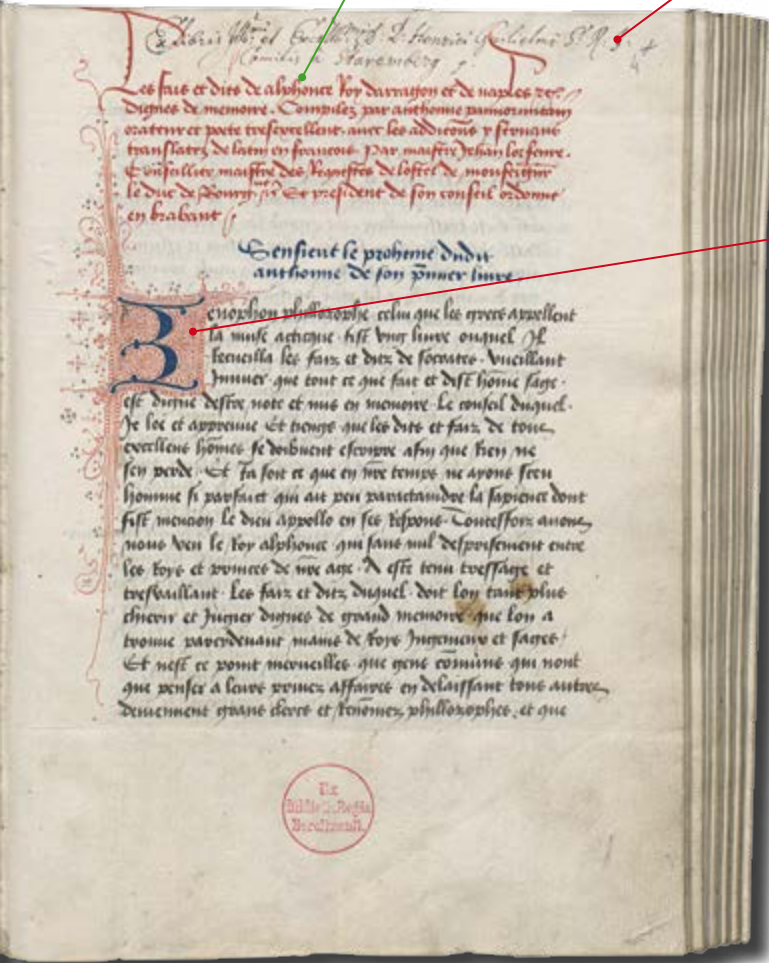 Ex libris Ill.mi et Excell.mi D. D. Henrici Guilielmi S. R. J.
Comitis a Staremberg
Les fais et dits de alphonce Roy darragon et de naples etc
dignes de memoire. Compilez par anthoine pannormitain
orateur et poete tresexcellent. avec les addicions y servans
translatez de latin en francois Par maistre Jehan lorfevre.
Conseillier maistre des Requestes de lostel de monseigneur
le duc de Bourg.ne Et president de son conseil ordonne
en brabant
Sensieut le proheme dudit
anthoine de son premier livre.
Zenophon philozophe celui que les grecs appellent
la muse atticque. fist ung livre ouquel Il
Recueilla les faiz et ditz de socrates. vueillant
Innuer que tout ce que fait et dist homme sage.
est digne destre note et mis en memoire. Le conseil duquel.
Je loe et appreuve Et tiengs que les dits et faiz de tous
excellens hommes se doibvent escripre afin que Rien ne
sen perde. Et Ja soit ce que en nostre temps ne ayons sceu
homme si parfait qui ait peu paractaindre la sapience dont
fist mencion le dieu appollo en ses Respons. Toutesfoiz avons
nous veu le Roy alphonce. qui sans nul desprisement entre
les Roys et princes de nostre age. A este tenu tressage et
tresvaillant. Les faiz et ditz duquel. doit lon tant plus
chierir et Jugier dignes de grand memoire que lon a
trouve paverdevant mains de Roys Ingenieux et sages
Et nest ce point merveilles que gens comuns qui nont
que penser a leurs privez affaires en delaissant tous autres
deviennent grans clercs et Renomez philozophes. et que
Ex
Biblioth. Regia
Berolinensi.